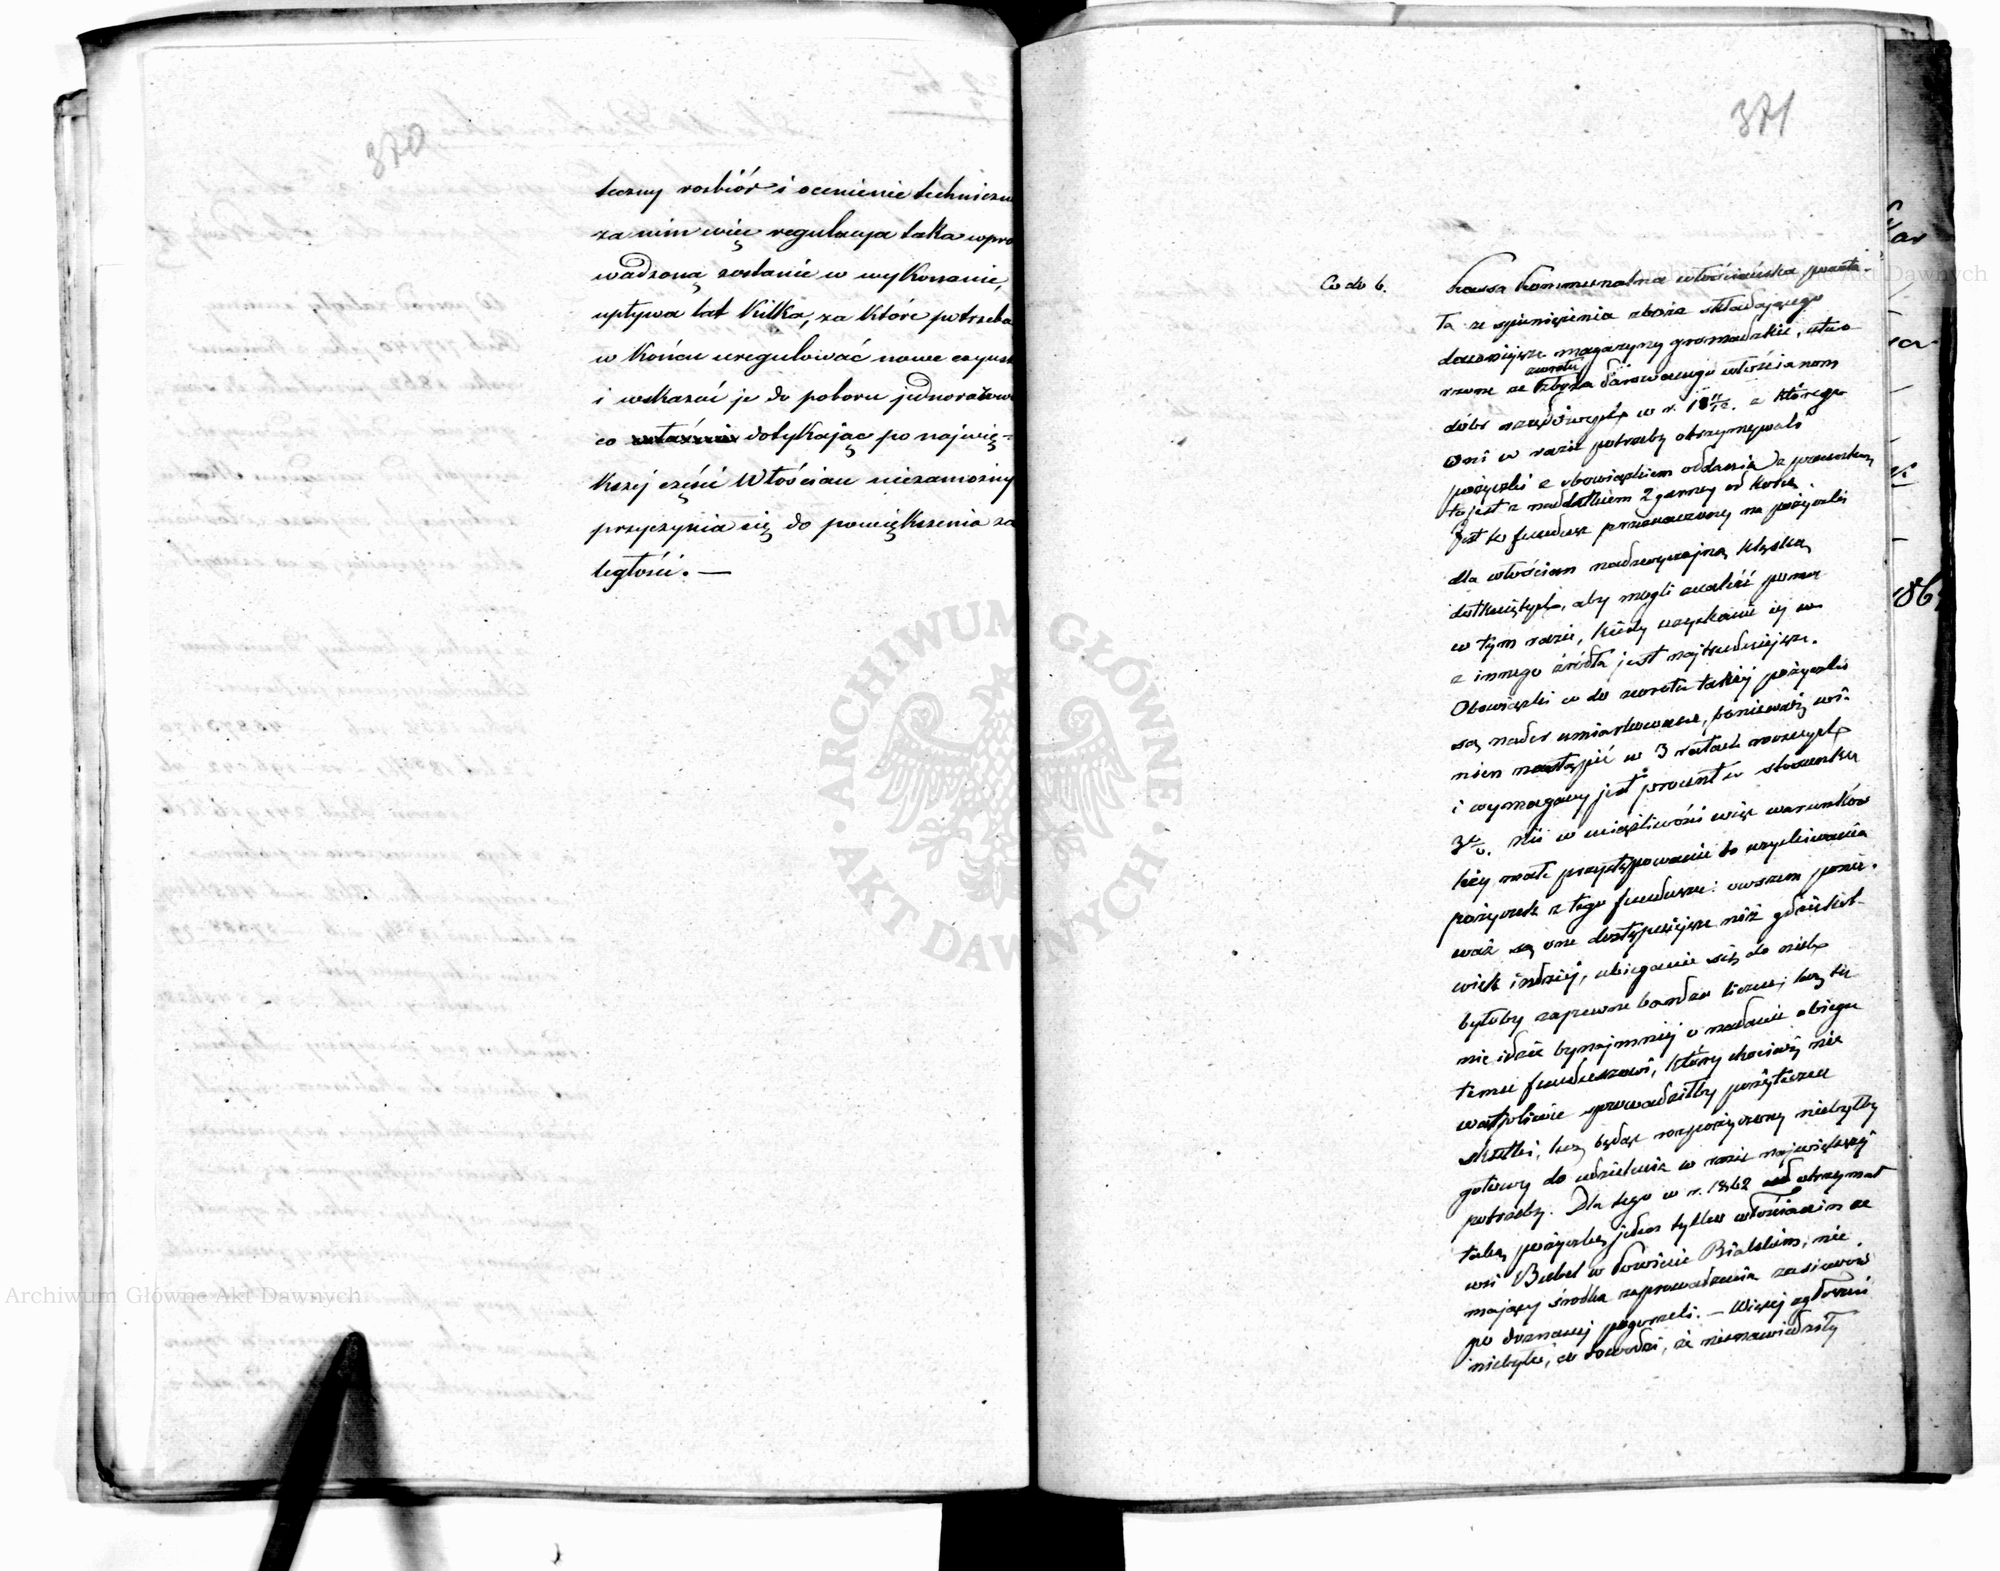 370
teczny rozbiór i ocenienie techniczn
za nim więc regulacja taka wpro
wadzoną zostanie w wykonanie,
upływa lat kilka, za które potrzeba
w końcu uregulować nowe czynsz
i wskazać je do poboru jednorazow
co dotykając po najwię-
kszej części Włościan niezamożny
przyczynia się do powiększenia za
ległości. —
371
Co do 6. Kassa kommunalna włościańska powsta-
ła ze spieniężenia zboża składającego
dawniejsze magazyny gromadzkie, utwo
rzone ze zwrotu zboża darowanego włościanom
dóbr rządowych w r. 18 z którego
oni w razie potrzeby otrzymywali
pożyczki z obowiązkiem oddania z
to jest z naddatkiem 2 garncy od korca.
Jest to fundusz przeznaczony na pożyczki
dla włościan nadzwyczajną klęską
dotkniętych, aby mogli znaleźć pomoc
w tym razie, kiedy uzyskanie jej
z innego źródła jest najtrudniejsze.
Obowiązki co do zwrotu takiej pożyczki
są nader umiarkowane, ponieważ wi-
nien nastąpić w 3 ratach rocznych
i wymagany jest procent w stosunku
3%. Nie w uciążliwości więc warunków
leży małe przystępowanie do uzyskiwania
pożyczek z tego funduszu: owszem ponie-
waż są one dostępniejsze niż gdziekol-
wiek indziej, ubieganie się do nich
byłoby zapewne bardzo liczne; lecz tu
nie idzie bynajmniej o nadanie obiegu
temu funduszowi, który chociaż nie
wątpliwie sprowadziłby pożyteczne
skutki, lecz będąc rozpożyczony niebyłby
gotowy do udzielenia w razie największej
potrzeby. Dla tego w r. 1862 otrzymał
taką pożyczkę jeden tylko włościanin ze
wsi Bubel w Powiecie Bialskim, nie
mający środka zaprowadzenia zasiewów
po doznanej pogorzeli. — Więcej zgłoszeń
niebyło, co dowodzi, że nienawiedzały